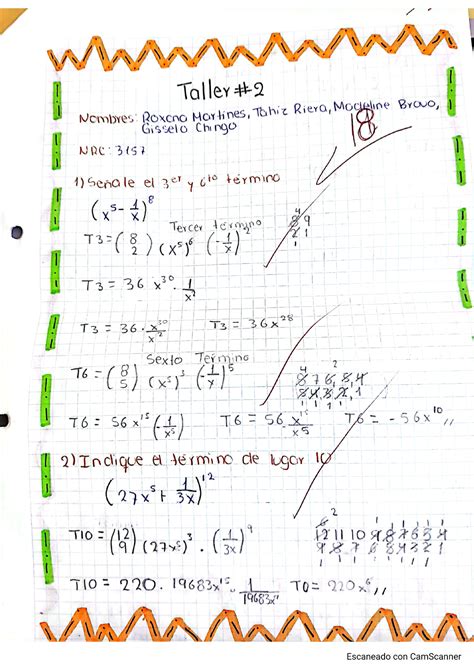 Taller #2
18
Nombres: Roxana Martines, Tahiz Riera, Madeline Bravo,
Gissela Chingo
NRC: 3157
1) Señale el 3er y 6to término
(x⁵ - 1/x)⁸
Tercer término
T3 = (8 2) (x⁵)⁶ (-1/x)²
T3 = 36 x³⁰ · 1/x²
T3 = 36 · x³⁰/x² T3 = 36x²⁸
Sexto Termino
T6 = (8 5) (x⁵)³ (-1/x)⁵
T6 = 56 x¹⁵ (-1/x⁵) T6 = 56 x¹⁵/x⁵ T6 = -56x¹⁰,,
2) Indique el término de lugar 10
(27x⁵ + 1/3x)¹²
T10 = (12 9) (27x⁵)³ · (1/3x)⁹
T10 = 220 · 19683x¹⁵ · 1/19683x⁹ T0 = 220x⁶,,
Escaneado con CamScanner